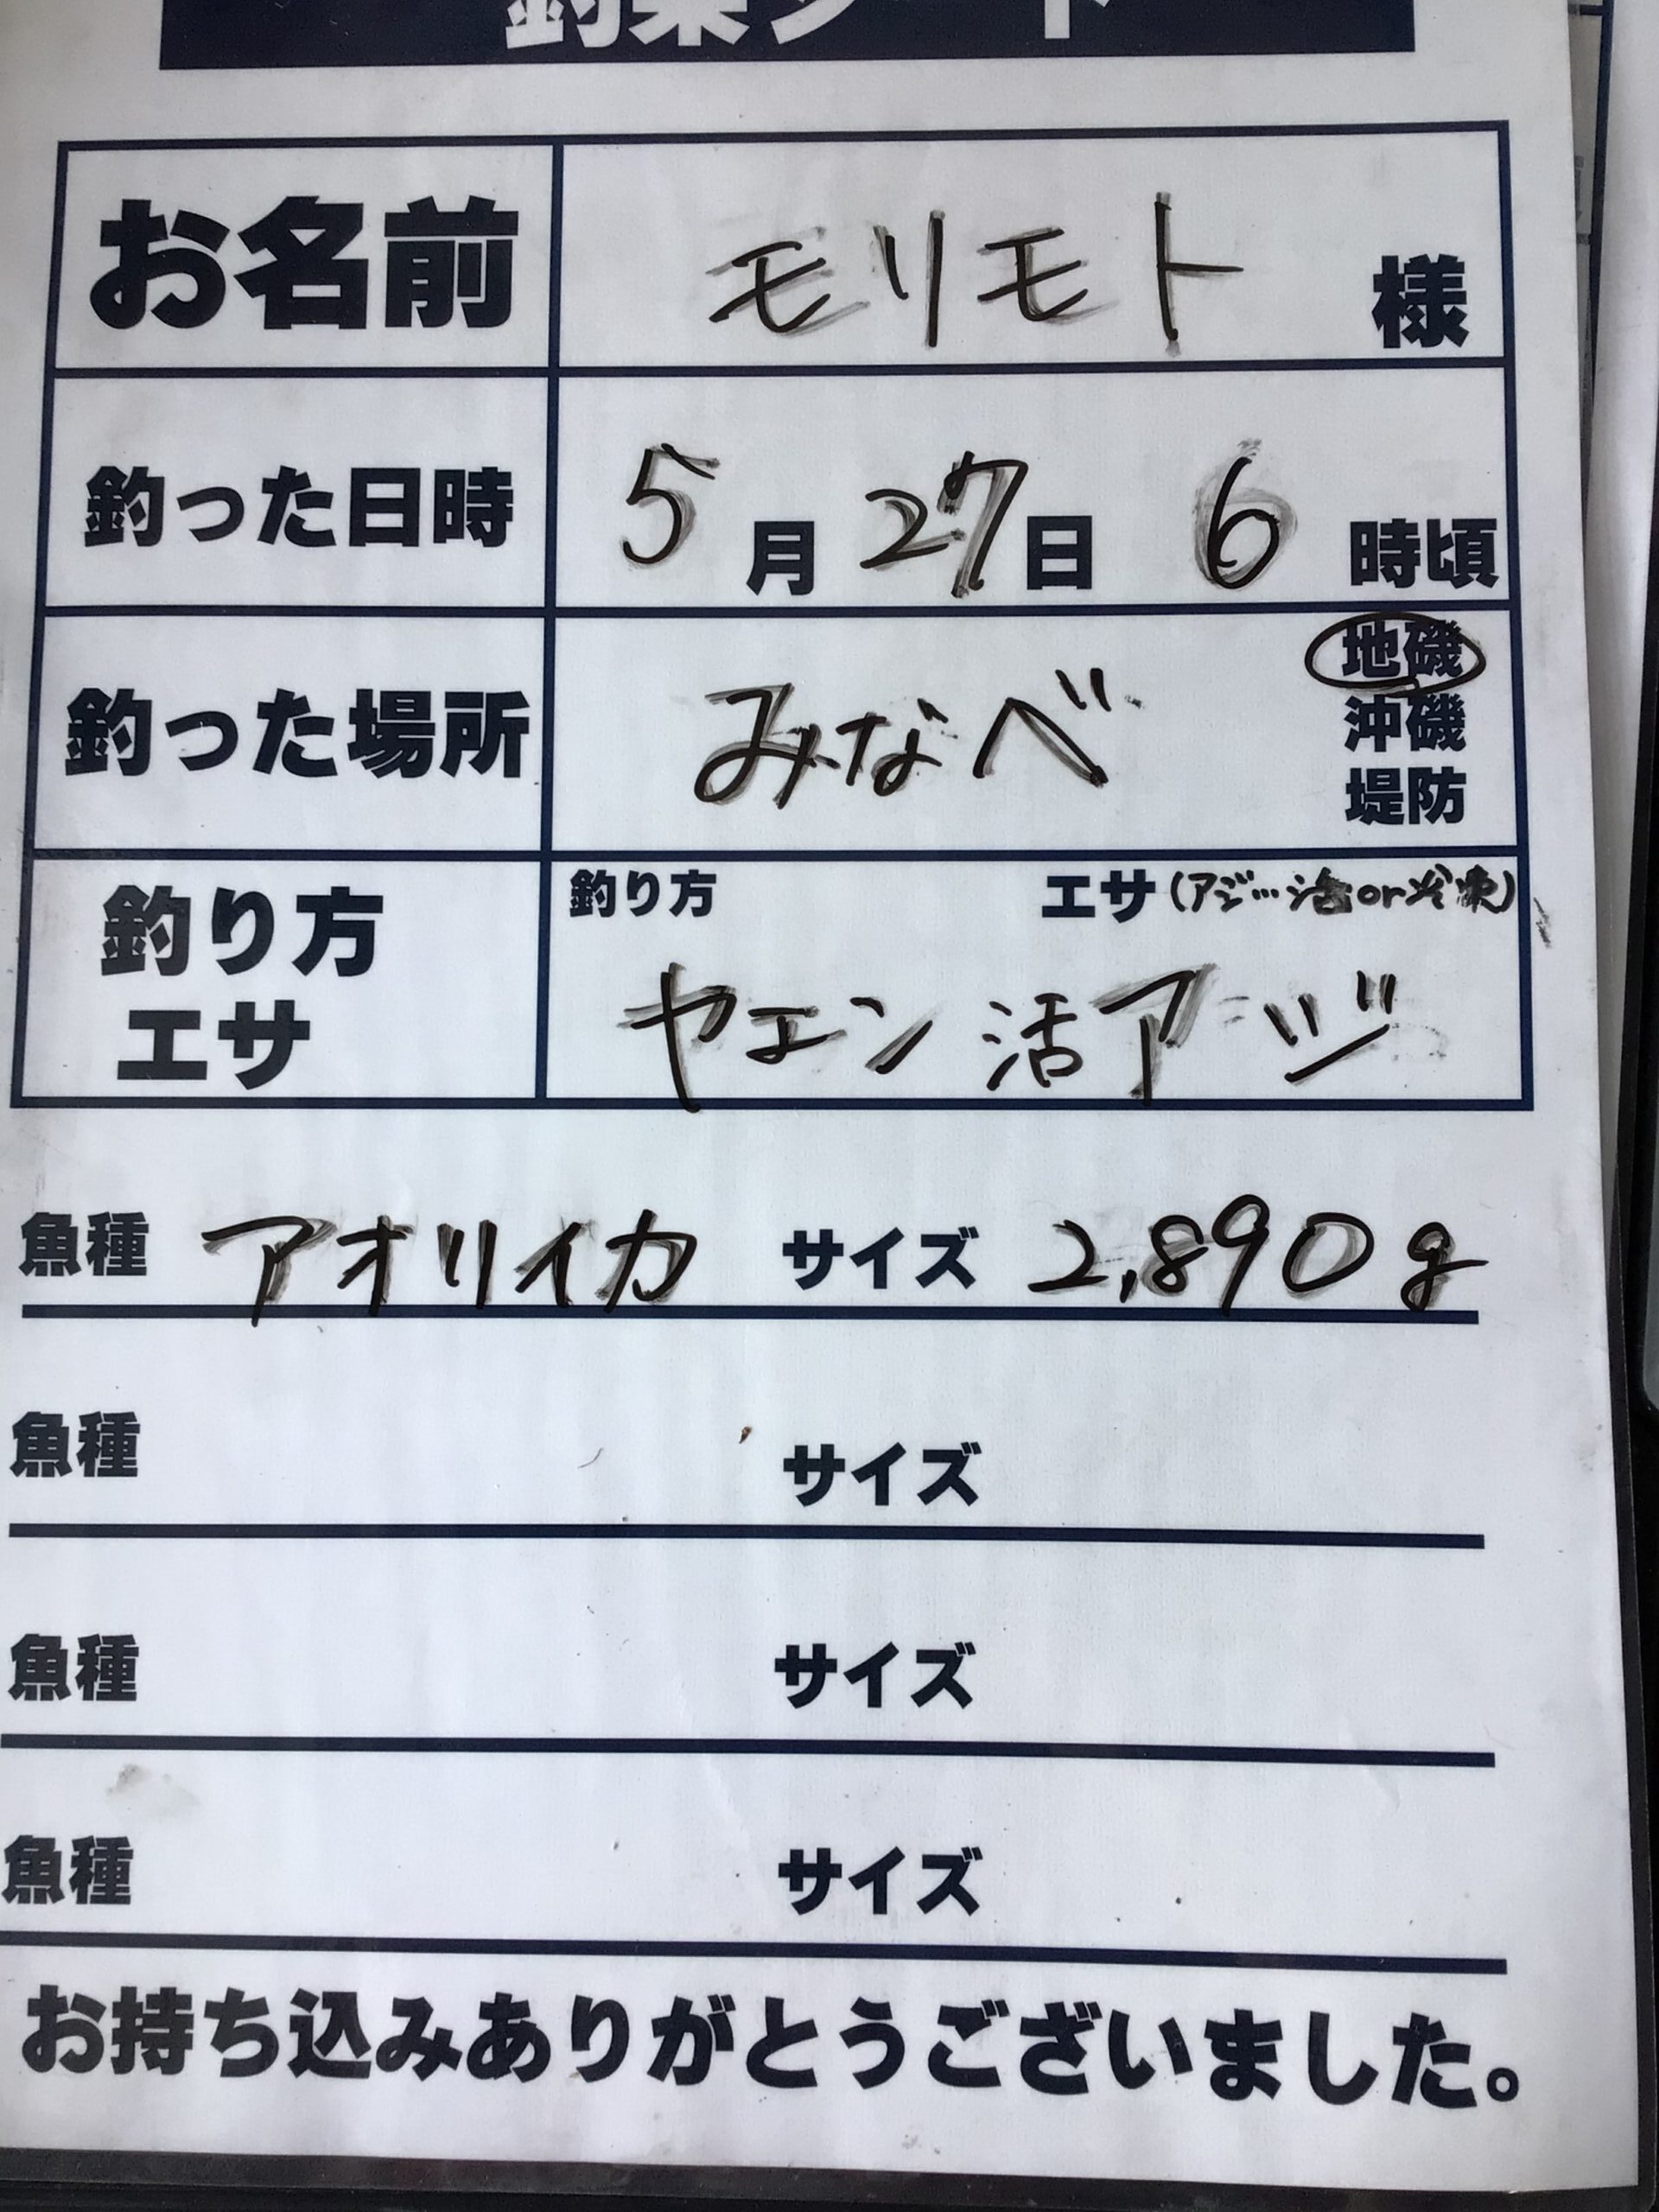 釣果シート
お名前 モリモト 様
釣った日時 5月27日 6時頃
釣った場所 みなべ 地磯
沖磯
堤防
釣り方 エサ(アジ…活or冷凍)
釣り方
エサ
ヤエン 活アジ
魚種 アオリイカ サイズ 2,890g
魚種 サイズ
魚種 サイズ
魚種 サイズ
お持ち込みありがとうございました。